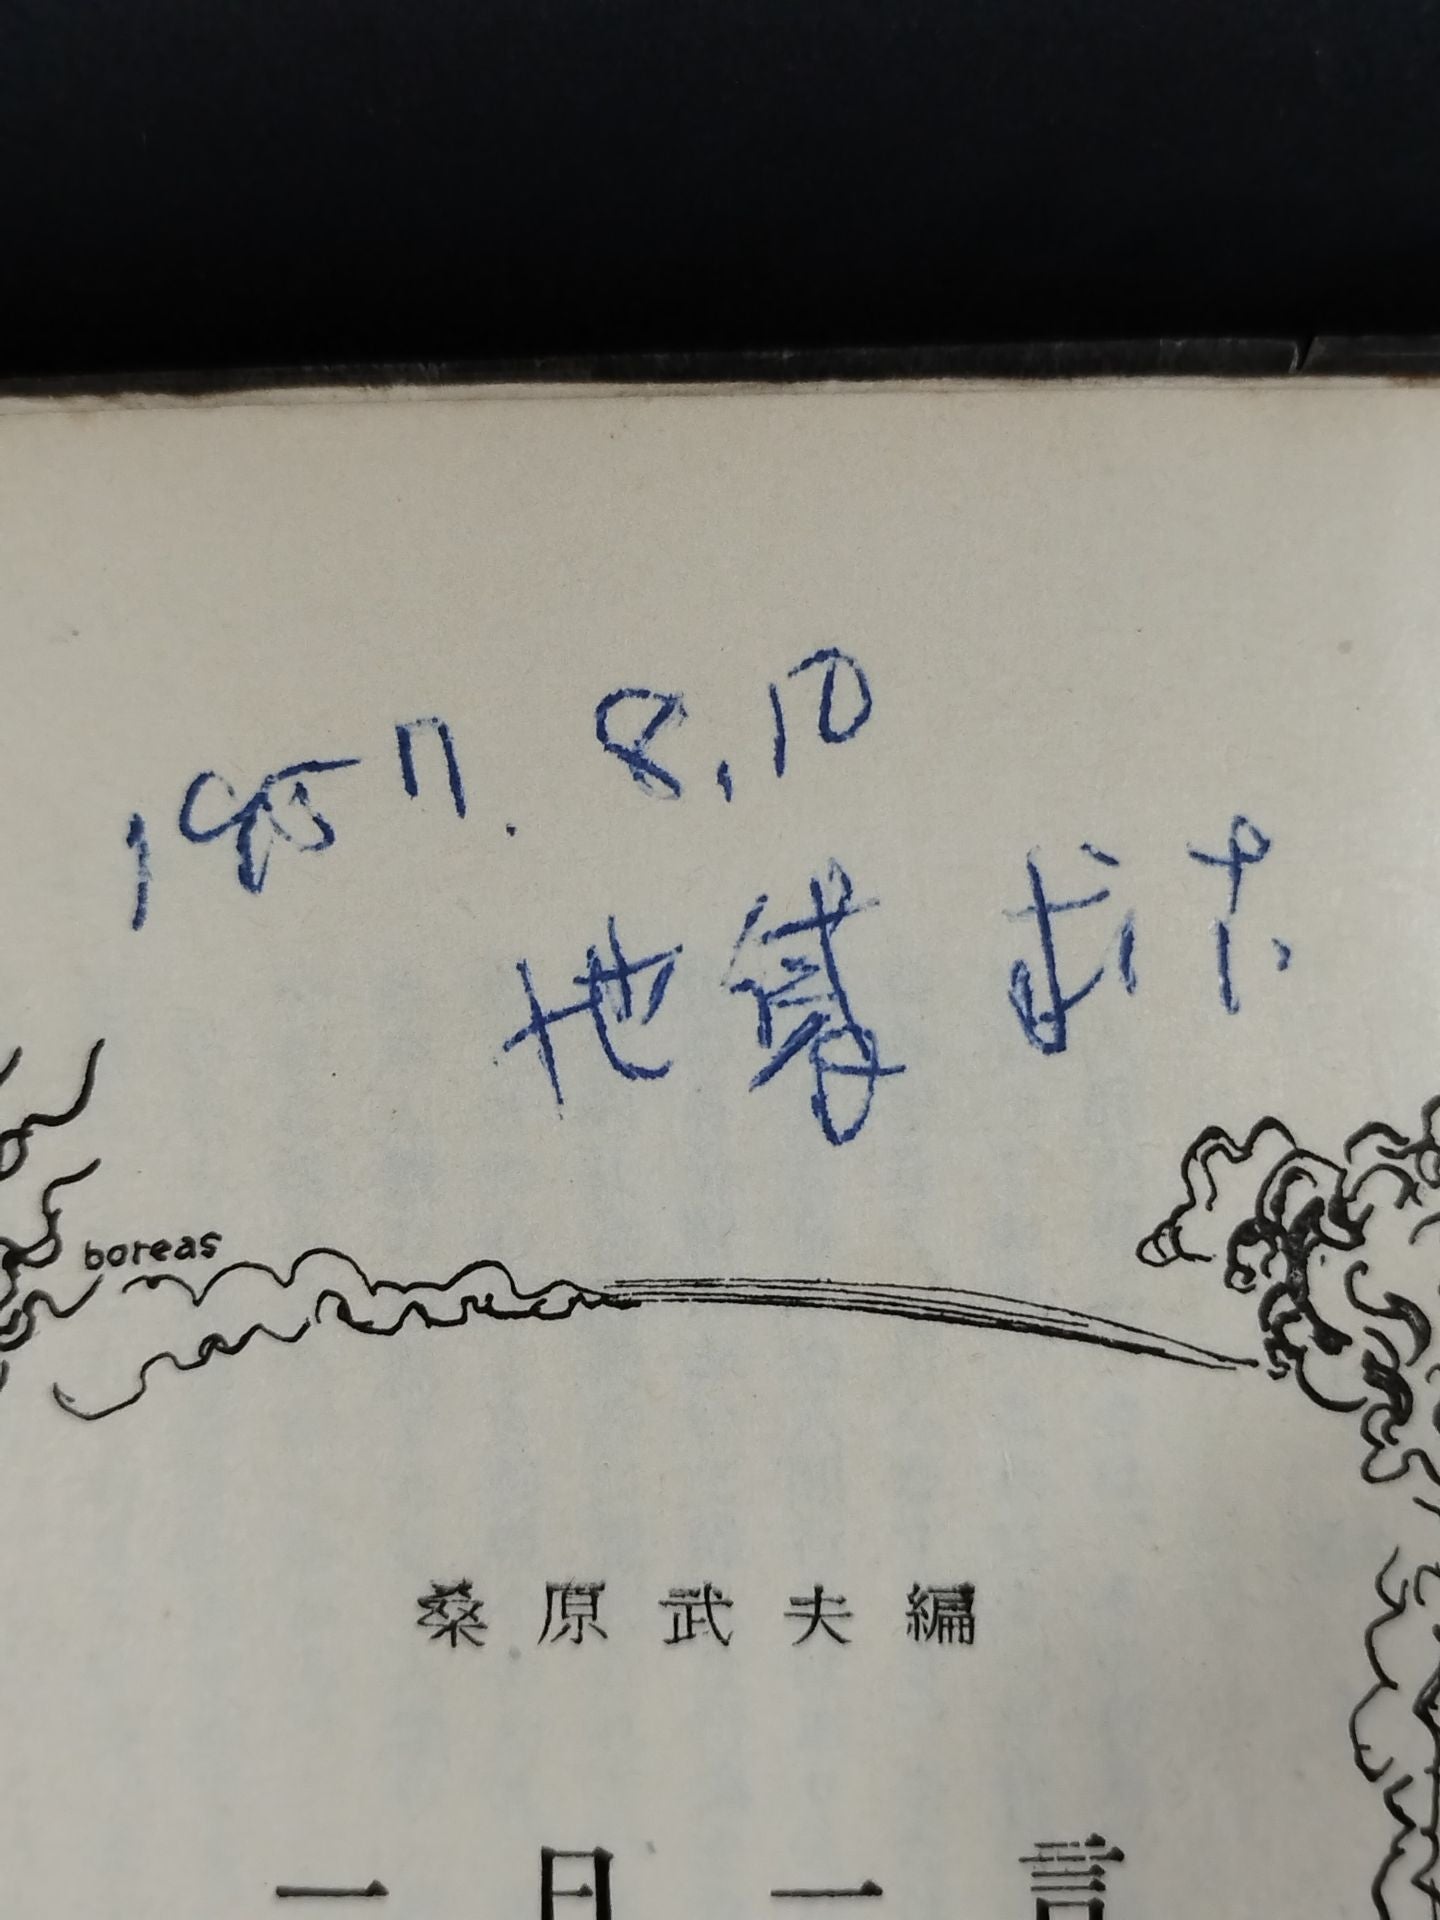 1957. 8, 10
地
boreas
桑原武夫編
一日一言